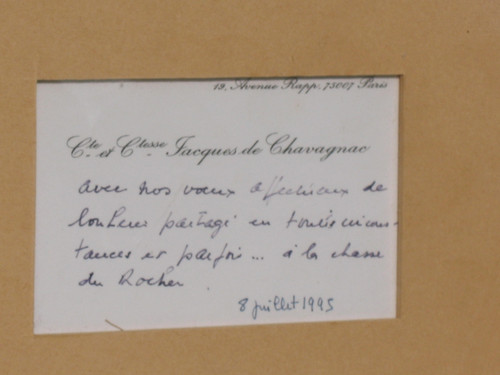 19, Avenue Rapp. 75007 Paris
Cte et Ctesse Jacques de Chavagnac
avec nos vœux affectueux de
bonheur partagé en toutes circons-
tances et parfois... à la chasse
du Rocher
8 juillet 1995